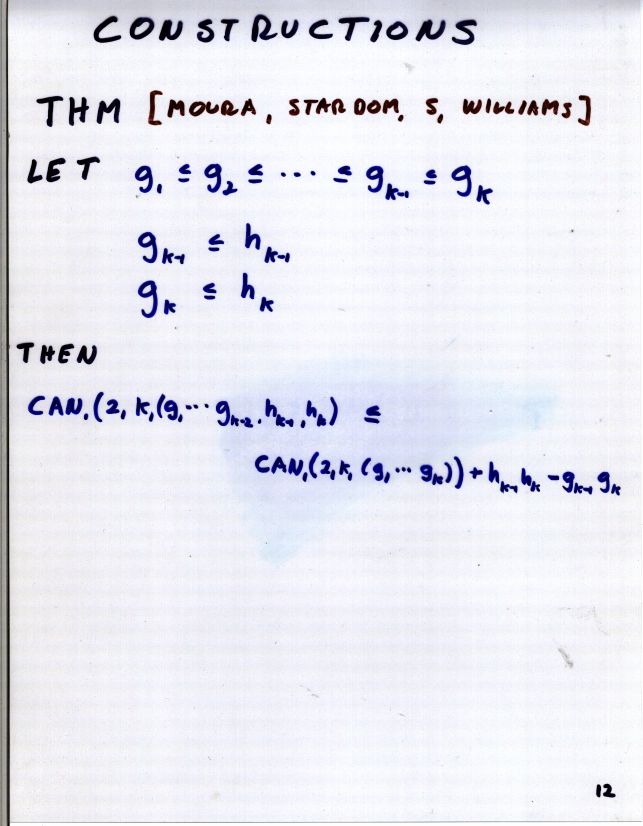 CONSTRUCTIONS
THM [MOURA, STARDOM, S, WILLIAMS]
LET g₁ ≤ g₂ ≤ ⋯ ≤ gₖ₋₁ ≤ gₖ
gₖ₋₁ ≤ hₖ₋₁
gₖ ≤ hₖ
THEN
CAN₁(2, k, (g₁ ⋯ gₖ₋₂, hₖ₋₁, hₖ) ≤
CAN₁(2, k, (g₁ ⋯ gₖ)) + hₖ₋₁ hₖ - gₖ₋₁ gₖ
12